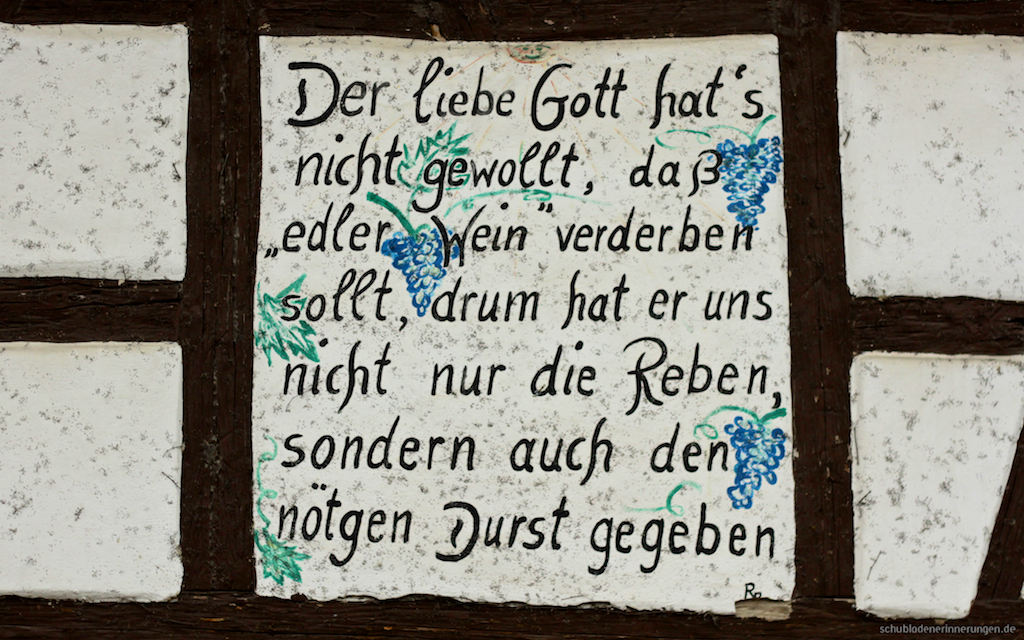 Der liebe Gott hat's
nicht gewollt, daß
„edler Wein" verderben
sollt, drum hat er uns
nicht nur die Reben,
sondern auch den
nötgen Durst gegeben
schublodenerinnerungen.de